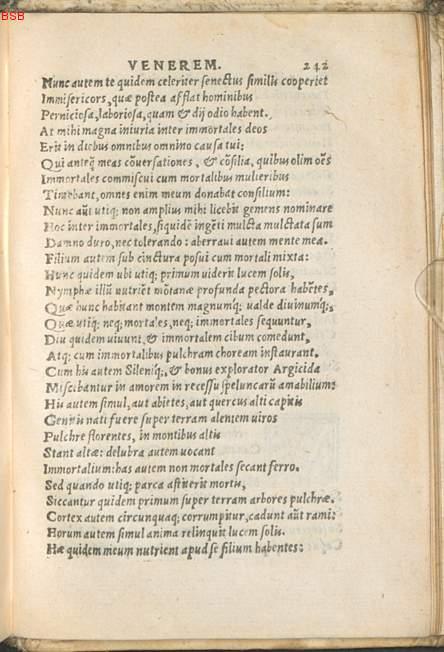 BSB
VENEREM. 242
Nunc autem te quidem celeriter senectus similis cooperiet
Immisericors, quæ postea afflat hominibus
Perniciosa, laboriosa, quam & dij odio habent.
At mihi magna iniuria inter immortales deos
Erit in diebus omnibus omnino causa tui:
Qui anteq̃ meas cõuersationes, & cõsilia, quibus olim oẽs
Immortales commiscui cum mortalibus mulieribus
Timebant, omnes enim meum donabat consilium:
Nunc aũt utiq; non amplius mihi licebit gemens nominare
Hoc inter immortales, siquidẽ ingẽti multa multata sum
Damno duro, nec tolerando: aberraui autem mente mea.
Filium autem sub cinctura posui cum mortali mixta:
Hunc quidem ubi utiq; primum uiderit lucem solis,
Nymphæ illũ nutriẽt mõtanæ profunda pectora habẽtes,
Quæ hunc habitant montem magnumq́; ualde diuinumq́;,
Quæ utiq; neq; mortales, neq; immortales sequuntur,
Diu quidem uiuunt, & immortalem cibum comedunt,
Atq; cum immortalibus pulchram choream instaurant.
Cum his autem Sileniq́;, & bonus explorator Argicida
Miscebantur in amorem in recessu speluncarũ amabilium:
His autem simul, aut abietes, aut quercus alti capitis
Genitis nati fuere super terram alentem uiros
Pulchre florentes, in montibus altis
Stant altæ: delubra autem uocant
Immortalium: has autem non mortales secant ferro.
Sed quando utiq; parca astiterit mortis,
Siccantur quidem primum super terram arbores pulchræ.
Cortex autem circunquaq; corrumpitur, cadunt aũt rami:
Horum autem simul anima relinquit lucem solis.
Hæ quidem meum nutrient apud se filium habentes: